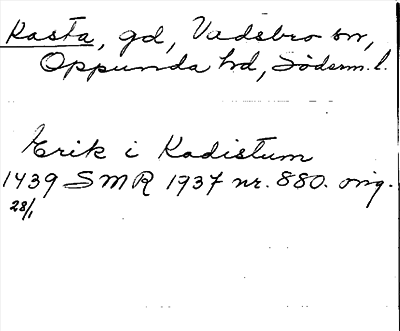 Kasta, gd, Vadsbro sn,
Oppunda hd, Söderm. l.
Erik i Kadistum
1439 SMR 1937 nr. 880. orig.
28/1